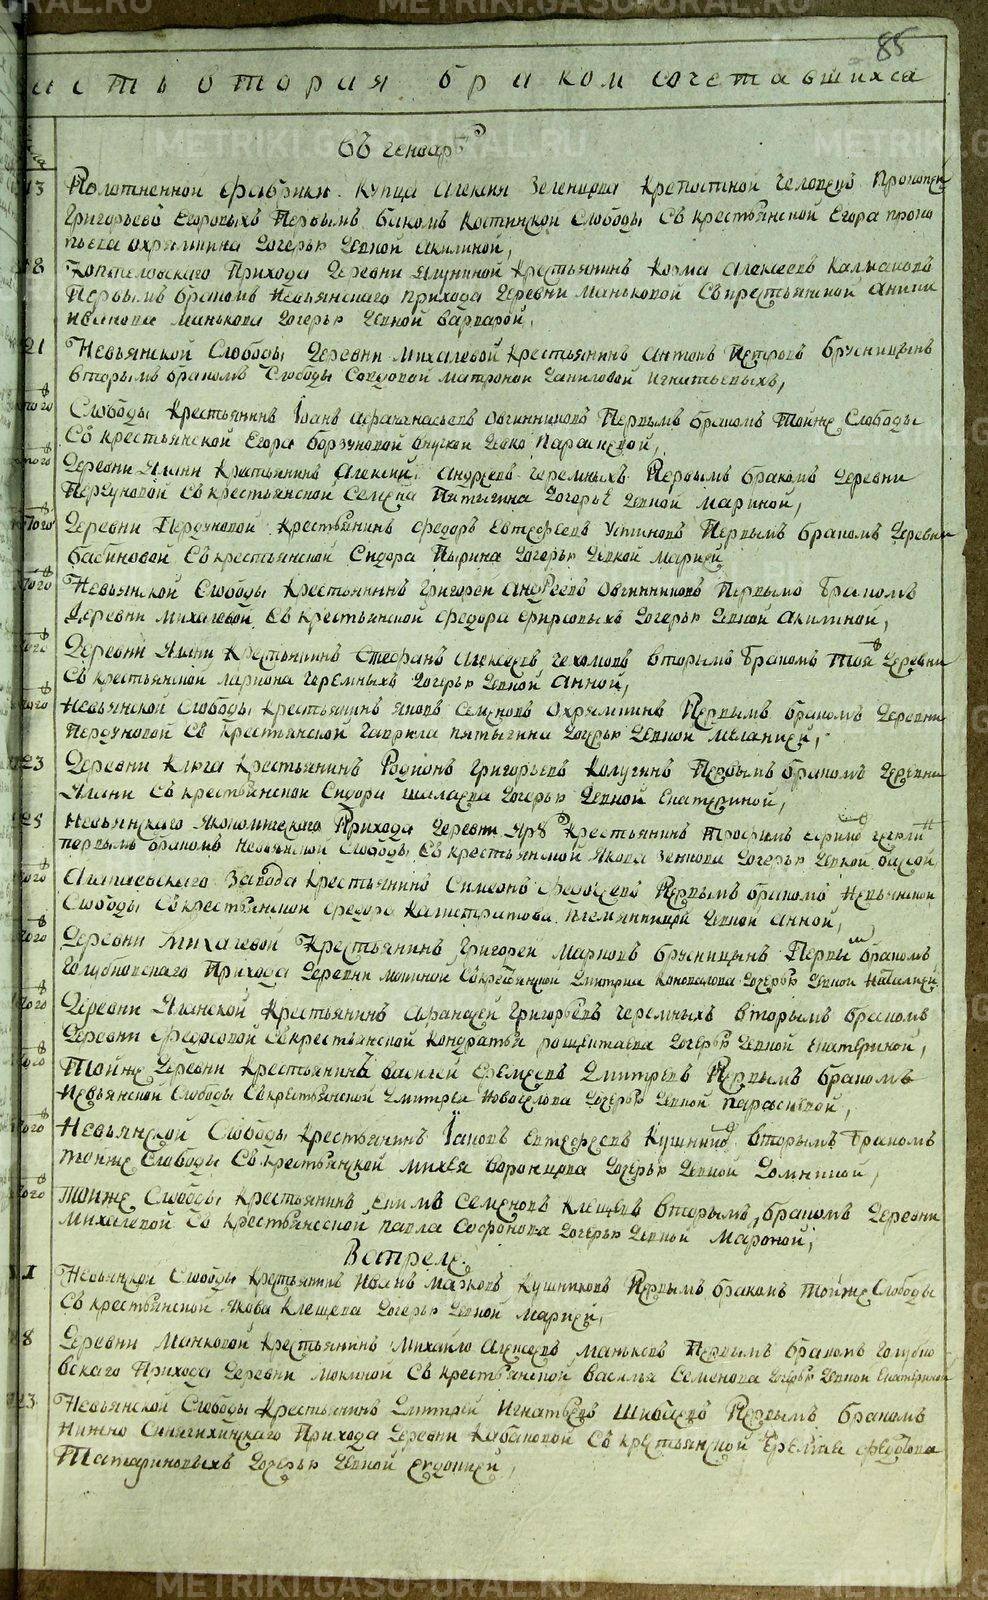 85
асть вторая бракомсочетавшихся
въ генваре
13 Полотненной фабрики купца Алексия Зеленцова крепостной человекъ Прокопей
Григорьевъ Егоровыхъ первымъ бракомъ Костинской слободы съ крестьянской Егора Проко
пьева Охрямкина дочерью девкой Акилиной,
18 Коптеловскаго прихода деревни Ялуниной крестьянинъ Козма Алексеевъ Калмаковъ
первымъ бракомъ Невьянскаго прихода деревни Маньковой съ крестьянской Аники
Иванова Манькова дочерью девкой Варварой,
21 Невьянской слободы деревни Михалевой крестьянинъ Антонъ Петровъ Брусницынъ
вторымъ бракомъ слободы Матроной Даниловой Игнатьевыхъ,
того слободы крестьянинъ Іоанъ Афанасьевъ Овчинниковъ первымъ бракомъ тойже слободы
съ крестьянской Егора внучкой девкой Парасковой,
того деревни Ялани крестьянинъ Алексий Андреевъ Черемныхъ первымъ бракомъ деревни
Пердуновой съ крестьянской Семена Пятыгина дочерью девкой Мариной,
того деревни Пердуновой крестьянинъ Федоръ Евтефеевъ Устиновъ первымъ бракомъ деревни
Бабиновой съ крестьянской Сидора Пырина дочерью девкой Марией
того Невьянской слободы крестьянинъ Григорей Андреевъ Овчинниковъ первымъ бракомъ
деревни Михалевой съ крестьянской Федора Фирсовыхъ дочерью девкой Акилиной,
того деревни Ялани крестьянинъ Стефанъ Алексеевъ Чехомовъ вторымъ бракомъ тоя деревни
съ крестьянской Лариона Черемныхъ дочерью девкой Анной,
того Невьянской слободы крестьянинъ Яковъ Семеновъ Охрямкинъ первымъ бракомъ деревни
Пердуновой съ крестьянской Гаврила Пятыгина дочерью девкой Меланией,
23 деревни Ключа крестьянинъ Родионъ Григорьевъ Калугинъ первымъ бракомъ деревни
Ялани съ крестьянской Сидора Шалаева дочерью девкой Екатериной,
25 Невьянскаго Якономическаго прихода деревни Яру крестьянинъ Трофимъ
первымъ бракомъ Невьянской слободы съ крестьянской Якова Зенкова дочерью девкой
того Алапаевскаго завода крестьянинъ Симеонъ Федосеевъ первымъ бракомъ Невьянской
слободы съ крестьянской Федора Калистратова племянницей девкой Анной,
того деревни Михалевой крестьянинъ Григорей Марковъ Брусницынъ первымъ бракомъ
Голубковскаго прихода деревни Мокиной съ крестьянской Дмитрия Коновалова дочерью девкой Наталией
того деревни Яланской крестьянинъ Афанасей Григорьевъ Черемныхъ вторымъ бракомъ
деревни Федосовой съ крестьянской Кондратья Рощектаева дочерью девкой Екатериной,
того тойже деревни крестьянинъ Василей Еремеевъ Дмитревъ первымъ бракомъ
Невьянской слободы съ крестьянской Дмитрея Новоселова дочерью девкой Парасковой,
того Невьянской слободы крестьянинъ Іаковъ Евтефеевъ Кушниковъ вторымъ бракомъ
тойже слободы съ крестьянской Михея Воронцова дочерью девкой Домникой,
того тойже слободы крестьянинъ Екимъ Семеновъ Клещевъ вторымъ бракомъ деревни
Михалевой съ крестьянской Павла Софонова дочерью девкой Марфой,
1 Невьянской слободы крестьянинъ Иоанъ Марковъ Кушниковъ первымъ бракомъ тойже слободы
съ крестьянской Якова Клещева дочерью девкой Марией,
8 деревни Манковой крестьянинъ Михайло Алексеевъ Маньковъ первымъ бракомъ Голубко
вскаго прихода деревни Мокиной съ крестьянской Василья Семенова дочерью девкой Екатериной
23 Невьянской слободы крестьянинъ Дмитрей Игнатьевъ Шибаевъ первымъ бракомъ
Нижно Синячихинскаго прихода деревни Кабаковой съ крестьянской Еремея Федотова
Татариновыхъ дочерью девкой Евдокией,
METRIKI.GASO-URAL.RU